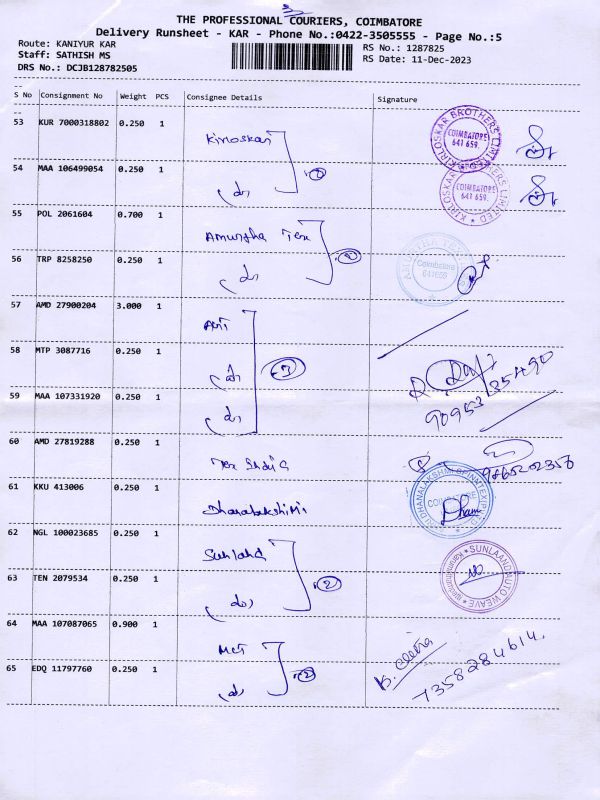 THE PROFESSIONAL COURIERS, COIMBATORE
Delivery Runsheet - KAR - Phone No.:0422-3505555 - Page No.:5
Route: KANIYUR KAR
RS No.: 1287825
Staff: SATHISH MS
RS Date: 11-Dec-2023
DRS No.: DCJB128782505
S No Consignment No Weight PCS Consignee Details Signature
53 KUR 7000318802 0.250 1 Kirloskar
KIRLOSKAR BROTHERS LIMITED COIMBATORE 641 659.
54 MAA 106499054 0.250 1 (do) 2
KIRLOSKAR BROTHERS LIMITED COIMBATORE 641 659.
55 POL 2061604 0.700 1 Amurtha Tex
56 TRP 8258250 0.250 1 (do) 2
AMURTHA TEX Coimbatore
57 AMD 27900204 3.000 1
58 MTP 3087716 0.250 1 (do) 3
59 MAA 107331920 0.250 1 (do)
60 AMD 27819288 0.250 1 Tex India
61 KKU 413006 0.250 1 Dhanalakshimi
COIMBATORE
Dham
62 NGL 100023685 0.250 1 Sunland
63 TEN 2079534 0.250 1 (do) 2
SUNLAAND AUTO WEAVE
64 MAA 107087065 0.900 1
65 EDQ 11797760 0.250 1 (do) 2
7358284614.